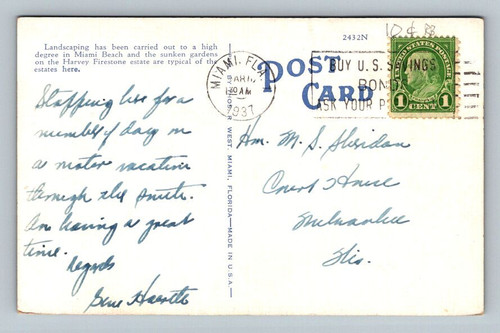 Landscaping has been carried out to a high
degree in Miami Beach and the sunken gardens
on the Harvey Firestone estate are typical of the
estates here.
Stopping here for a
number of days on
a motor vacation
through the south.
Am having a great
time.
Regards
Gene
2432N
POST
CARD
WEST, MIAMI, FLORIDA—MADE IN U.S.A.
MIAMI, FLA
MAR
AM
1937
BUY U.S. SAVINGS
BONDS
ASK YOUR P
UNITED STATES POSTAGE
1 CENT 1
Hon. M. S. Sheridan
Court House
Milwaukee
Wis.